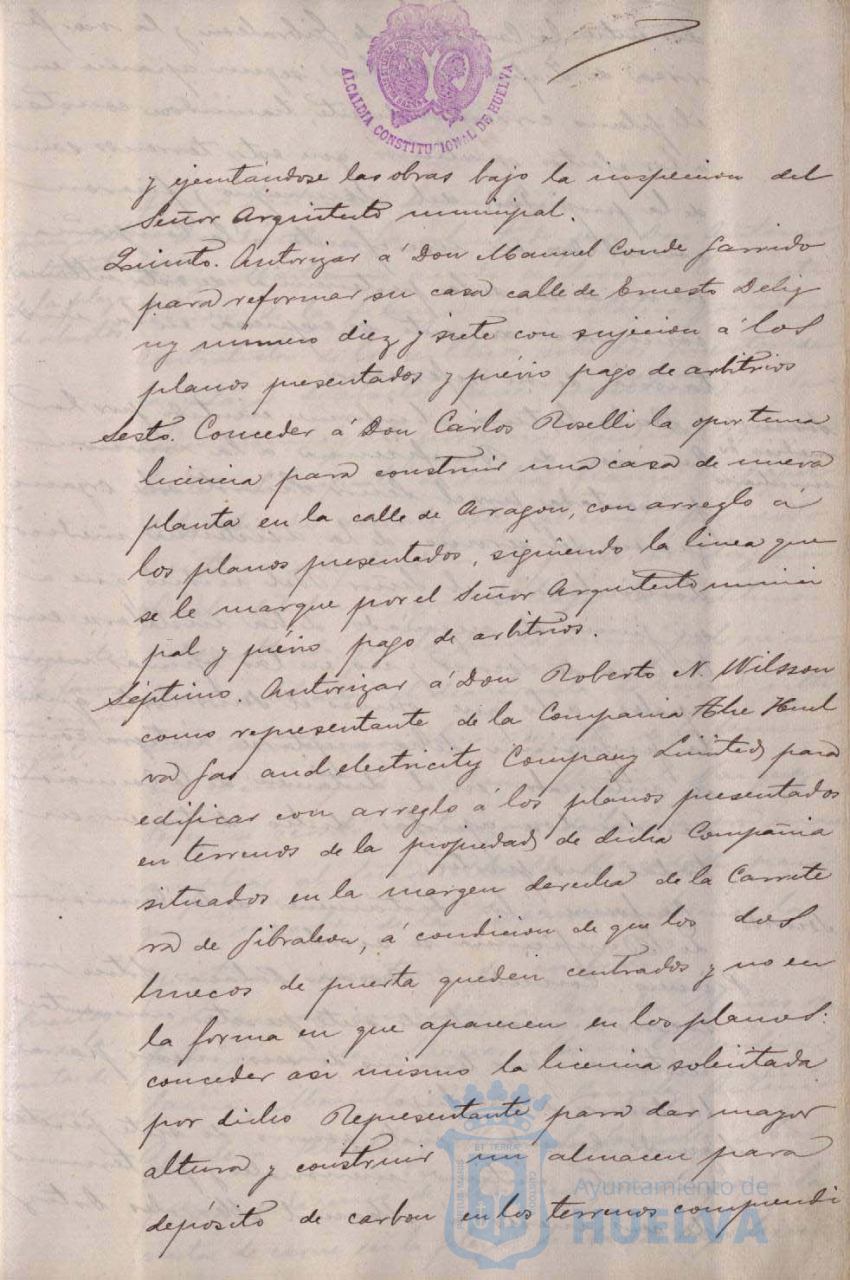 ALCALDIA CONSTITUCIONAL DE HUELVA
y ejecutándose las obras bajo la inspeccion del
Señor Arquitecto municipal.
Quinto. Autorizar á Don Manuel Conde Garrido
para reformar su casa calle de Ernesto Delig
ny número diez y siete con sujecion á los
planos presentados y prévio pago de arbitrios
Sesto. Conceder á Don Cárlos Roselli la oportuna
licencia para construir una casa de nueva
planta en la calle de Aragon, con arreglo á
los planos presentados, siguiendo la linea que
se le marque por el Señor Arquitecto munici
pal y prévio pago de arbitrios.
Séptimo. Autorizar á Don Roberto N. Wilsson
como representante de la Compañia The Huel
va Gas and electricity Company Limited, para
edificar con arreglo á los planos presentados
en terrenos de la propiedad de dicha Compañia
situados en la margen derecha de la Carrete
ra de Gibraleon, á condicion de que los dos
huecos de puerta queden centrados y no en
la forma en que aparecen en los planos:
conceder asi mismo la licencia solicitada
por dicho Representante para dar mayor
altura y construir un almacen para
depósito de carbon en los terrenos comprendi
Ayuntamiento de
HUELVA